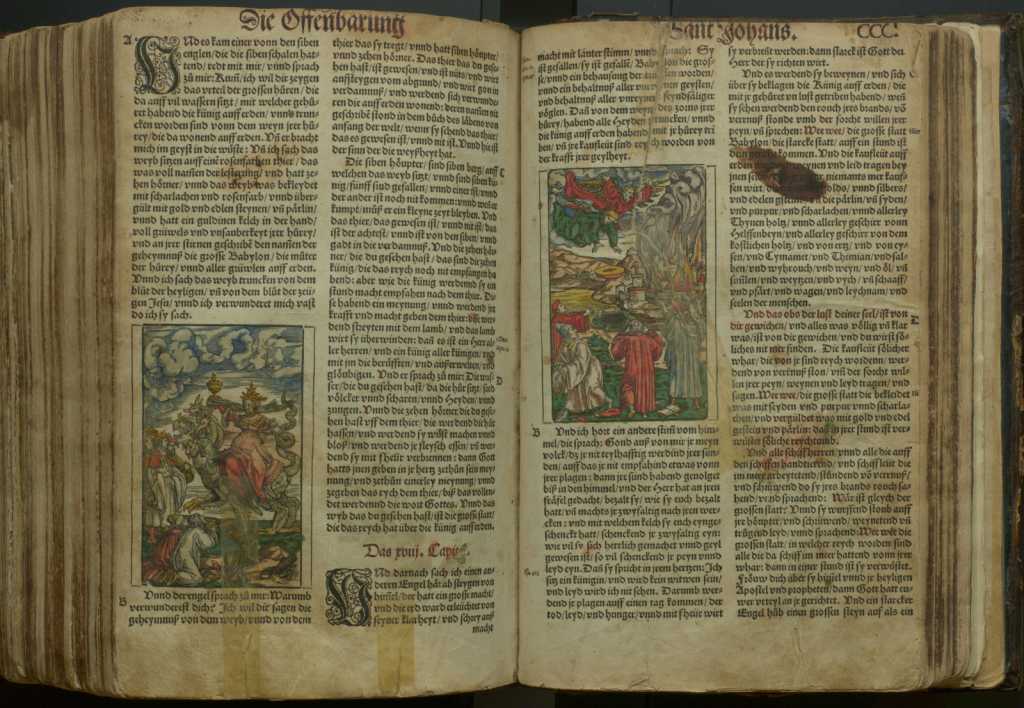 Die Offenbarung
A
Und es kam einer vonn den siben
englen / die die siben schalen hat-
tend / redt mit mir / vnnd sprach
zů mir: Kum̃ / ich wil dir zeygen
das vrteil der grossen hůren / die
da auff vil wassern sitzt / mit welcher gehů-
ret habend die künig auff erden / vnnd trun-
cken worden sind vonn dem weyn jrer hů-
rey / die da wonend auff erden. Vñ er bracht
mich im geyst in die wůste: Vñ ich sach das
weyb sitzen auff einẽ rosenfarben thier / das
was voll nam̃en der lesterung / vnd hatt ze-
hen hörner / vnnd das weyb was bekleydet
mit scharlachen vnd rosenfarb / vnnd über-
gült mit gold vnd edlen steynen / vñ pärlin /
vnnd hatt ein guldinen kelch in der hand /
voll grüwels vnd vnsauberkeyt jrer hůrey /
vnd an jrer stirnen geschribẽ den nam̃en der
geheymnuß die grosse Babylon / die můter
der hůrey / vnnd aller grüwlen auff erden.
Vnnd ich sach das weyb truncken von dem
blůt der heyligen / vñ von dem blůt der zeü-
gen Jesu / vnnd ich verwunderet mich vast
do ich sy sach.
B
Vnnd der engel sprach zů mir: Warumb
verwunderest dich? Ich wil dir sagen die
geheymnuß von dem weyb / vnd von dem
thier das sy tregt / vnnd hatt siben höupter /
vnnd zehen hörner. Das thier das du gese-
hen hast / ist gewesen / vnd ist nüts / vnd wirt
auffsteygen vom abgrund / vnd wirt gon in
verdamnuß / vnd werdend sich verwunde-
ren die auff erden wonend: deren nam̃en nit
geschribẽ stond in dem bůch des läbens von
anfang der welt / wenn sy sehend das thier /
das es gewesen ist / vnnd nit ist. Vnd hie ist
der sinn der die weyßheyt hat.
Die siben höupter / sind siben berg / auff
welchen das weyb sitzt / vnnd sind siben kü-
nig / fünff sind gefallen / vnnd einer ist / vnnd
der ander ist noch nit kommen: vnnd wen er
kumpt / můß er ein kleyne zeyt bleyben. Vnd
das thier / das gewesen ist / vnnd nit ist / das
ist der achtest / vnnd ist von den siben / vnnd
gadt in die verdamnuß. Vnd die zehen hör-
ner / die du gesehen hast / das sind die zehen
künig / die das reych noch nit empfangen ha-
bend: aber wie die künig werdend sy ein
stund macht empfahen nach dem thier. Di-
se habend ein meynung / vnnd werdend jr
krafft vnd macht geben dem thier: dise wer-
dend streyten mit dem lamb / vnd das lamb
wirt sy überwinden: daß es ist ein Herr al-
ler herren / vnd ein künig aller künigen / vnd
mit jm die berüfften / vnd außerwelten / vnd
glöubigen. Vnd er sprach zů mir: Die was-
ser / die du gesehen hast / da die hůr sitzt / sind
völcker vnnd scharen / vnnd Heyden / vnd
zungen. Vnnd die zehen hörner die du gese-
hen hast vff dem thier / die werdend die hůr
hassen / vnd werdend sy wůst machen vnnd
bloß / vnd werdend jr fleysch essen / vñ wer-
dend sy mit fheür verbrennen: dann Gott
hatts jnen geben in jr hertz zethůn sein mey-
nung / vnd zethůn einerley meynung / vnnd
zegeben das rych dem thier / biß das vollen-
det werdennd die wort Gottes. Vnnd das
wyb das du gesehen hast / ist die grosse statt /
die das reych hat über die künig auff erden.
C
D
Das xviij. Capit.
Und darnach sach ich einen an-
deren Engel hör ab steygen von
him̃el / der hatt ein grosse macht /
vnd die erd ward erleüchtet von
seyner klarheyt / vnd schrey auß
macht
Sant Johans.
CCC.
macht mit lauter stimm / vnnd sprach: Sy
ist gefallen / sy ist gefallẽ / Babylon die gros-
se / vnnd ein behausung der teüflen worden /
vnnd ein behaltnuß aller vnreynen geysten /
vnd behaltnuß aller vnreynen feyndsäliger
vöglen. Daß von dem weyn des zorns jrer
hůrey / habend alle Heyden truncken / vnnd
die künig auff erden habend mit jr hůrey tri
ben / vñ jre kaufleüt sind reych worden von
der krafft jrer geylheyt.
B
Vnd ich hort ein andere stim̃ vom him-
mel / die sprach: Gond auß von mir jr meyn
volck / dz jr nit teylhafftig werdind jrer sün-
den / auff das jr nit empfahind etwas vonn
jrer plagen: dann jre sünd habend gevolget
biß in den himmel / vnd der Herr hat an jren
fräfel gedacht / bezalt sy / wie sy euch bezalt
hatt / vñ machts jr zwyfaltig nach jren wer-
cken: vnd mit welchem kelch sy euch eynge-
schenckt hatt / schenckend jr zwyfaltig eyn:
wie vil sy sich herrlich gemachet vnnd geyl
gewesen ist / so vil schenckend jr peyn vnnd
leyd eyn. Daß sy spricht in jrem hertzen: Ich
sitz ein künigin / vnd wird kein witwen sein /
vnd leyd wird ich nit sehen. Darumb wer-
dend jr plagen auff einen tag kommen / der
tod / leyd / vnd hunger / vnnd mit fheür wirt
sy verbrent werden: dann starck ist Gott der
Herr der sy richten wirt.
C
Vnd es werdend sy beweynen / vnd sich
über sy beklagen die Künig auff erden / die
mit jr gehůret vñ lust getriben habend / weñ
sy sehen werdend den rouch jres brands / võ
verrnuß stonde vmb der forcht willen jrer
peyn / vñ sprechen: Wee wee / die grosse statt
Babylon / die starcke statt / auff ein stund ist
dein gericht kommen. Vnd die kaufleüt auff
erden werdend weynen vnd leid tragen bey
jnen selbs / das jrer niemants mer kauf-
fen wirt. des golds / vnd silbers /
vnd edelen gsteins / vñ die pärlin / vñ syden /
vnd purpur / vnd scharlachen / vnnd allerley
Thynen holtz / vnd allerley geschirr vonn
Helffenbeyn / vnd allerley geschirr von dem
kostlichen holtz / vnd von ertz / vnd von ey-
sen / vnd Cynamet / vnd Thimian / vnd sal-
ben / vnd wyhrouch / vnd weyn / vnd öl / vñ
sim̃len / vnd weytzen / vnd vych / vñ schaaff /
vnd pfärt / vnd wagen / vnd leychnam / vnd
seelen der menschen.
Vnd das obs der lust deiner seel / ist von
dir gewichen / vnd alles was völlig vñ klar
was / ist von dir gewichen / vnd du wirst sö-
liches nit mer finden. Die kaufleüt sölicher
whar / die von jr sind reych wordenn / wer-
dend von verrnuß ston / vm̃ der forcht wil-
len jrer peyn / weynen vnd leyd tragen / vnd
sagen. Wee wee / die grosse statt die bekleidet
was mit seyden vnd purpur vnnd scharla-
chen / vnd vergüldet was mit gold vnd edel
gestein vnd pärlin: das in jrer stund ist ver-
wüstet söliche reychtumb.
D
Vnnd alle schiffherren / vnnd alle die auff
den schiffen handtierend / vnd schiffleüt die
im meer arbeytetend / stůndend võ verrnuß /
vnd schrüwend do sy jres brands rouch sa-
hend / vnnd sprachend: Wär ist gleych der
grossen statt? Vnnd sy wurffend stoub auff
jre höupter / vnd schrüwend / weynetend vñ
trůgend leyd / vnnd sprachend: Wee wee die
grossen statt / in welcher reych worden sind
alle die da schiff im meer hattend von jrer
whar: dann in einer stund ist sy verwůstet.
Fröuw dich über sy him̃el vnnd jr heyligen
Apostel vnd propheten / dann Gott hatt eu-
wer vrteyl an jr gerichtet. Vnd ein starcker
Engel hůb einen grossen steyn auf als ein